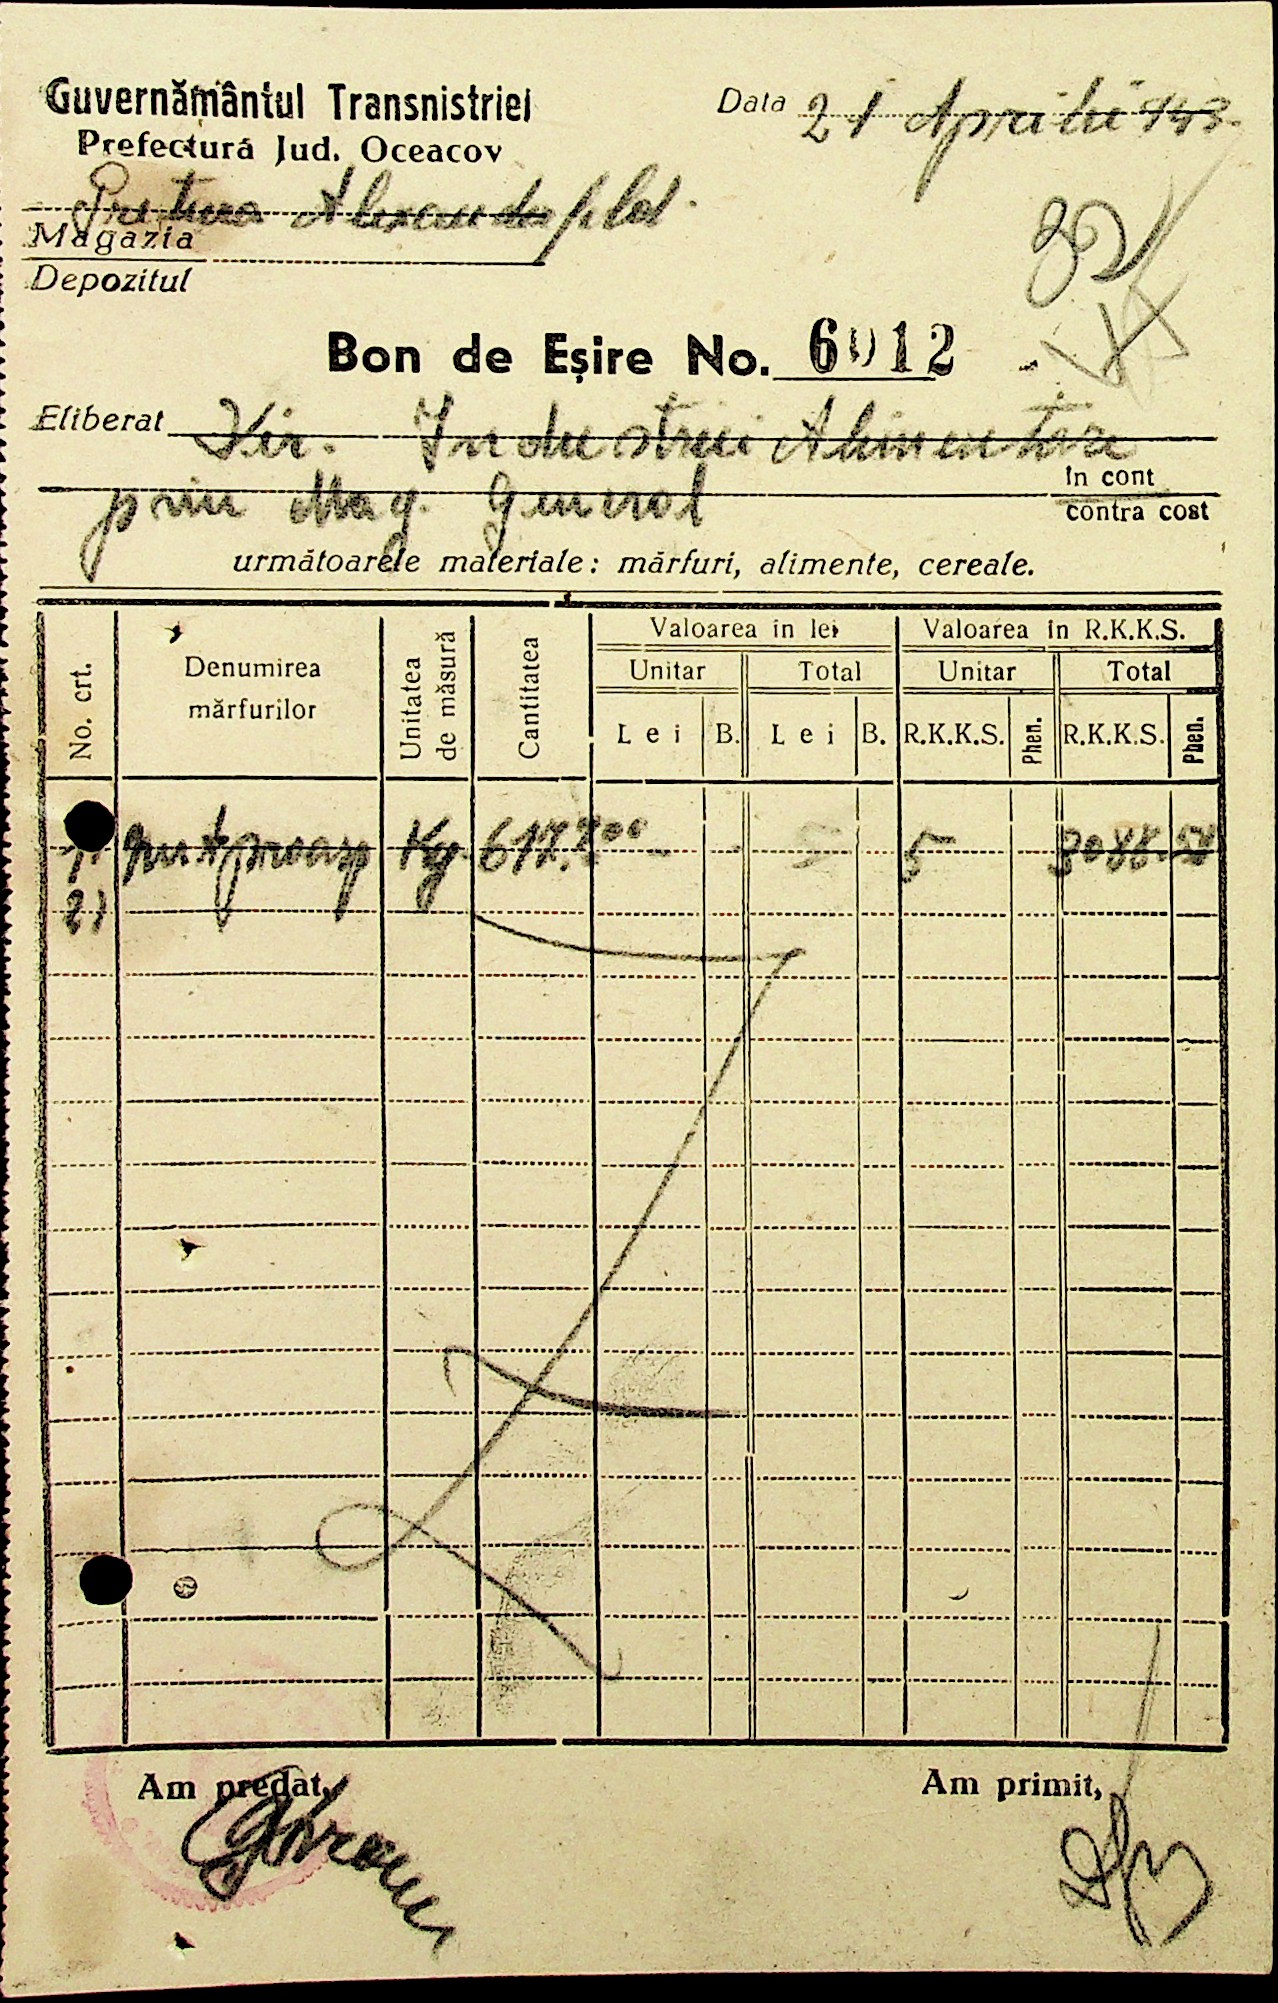 Guvernământul Transnistriei
Data 21 Aprilie 943.
Prefectură Jud. Oceacov
Pretura
Magazia
Depozitul
Bon de Eșire No. 6012
Eliberat Dir. Industriei Alimentare
prin Mag. General
în cont
contra cost
următoarele materiale: mărfuri, alimente, cereale.
No. crt. Denumirea mărfurilor Unitatea de măsură Cantitatea Valoarea în lei Valoarea în R.K.K.S.
Unitar Total Unitar Total
Lei B. Lei B. R.K.K.S. Phen. R.K.K.S. Phen.
1) Kg. 617.700 5 3088.50
2)
Am predat, Am primit,